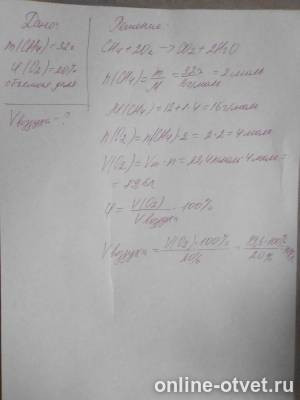 Дано:
m(CH4)=32г
φ(O2)=20%
объемная доля
Vвоздуха-?
Решение:
CH4+2O2→CO2+2H2O
n(CH4)=m/M=32г/16г/моль=2 моль
M(CH4)=12+1·4=16г/моль
n(O2)=n(CH4)·2=2·2=4моль
V(O2)=Vm·n=22,4л/моль·4моль=
=89,6л
φ=V(O2)/Vвоздуха·100%
Vвоздуха=V(O2)·100%/20%=89,6·100%/20%=
online-otvet.ru